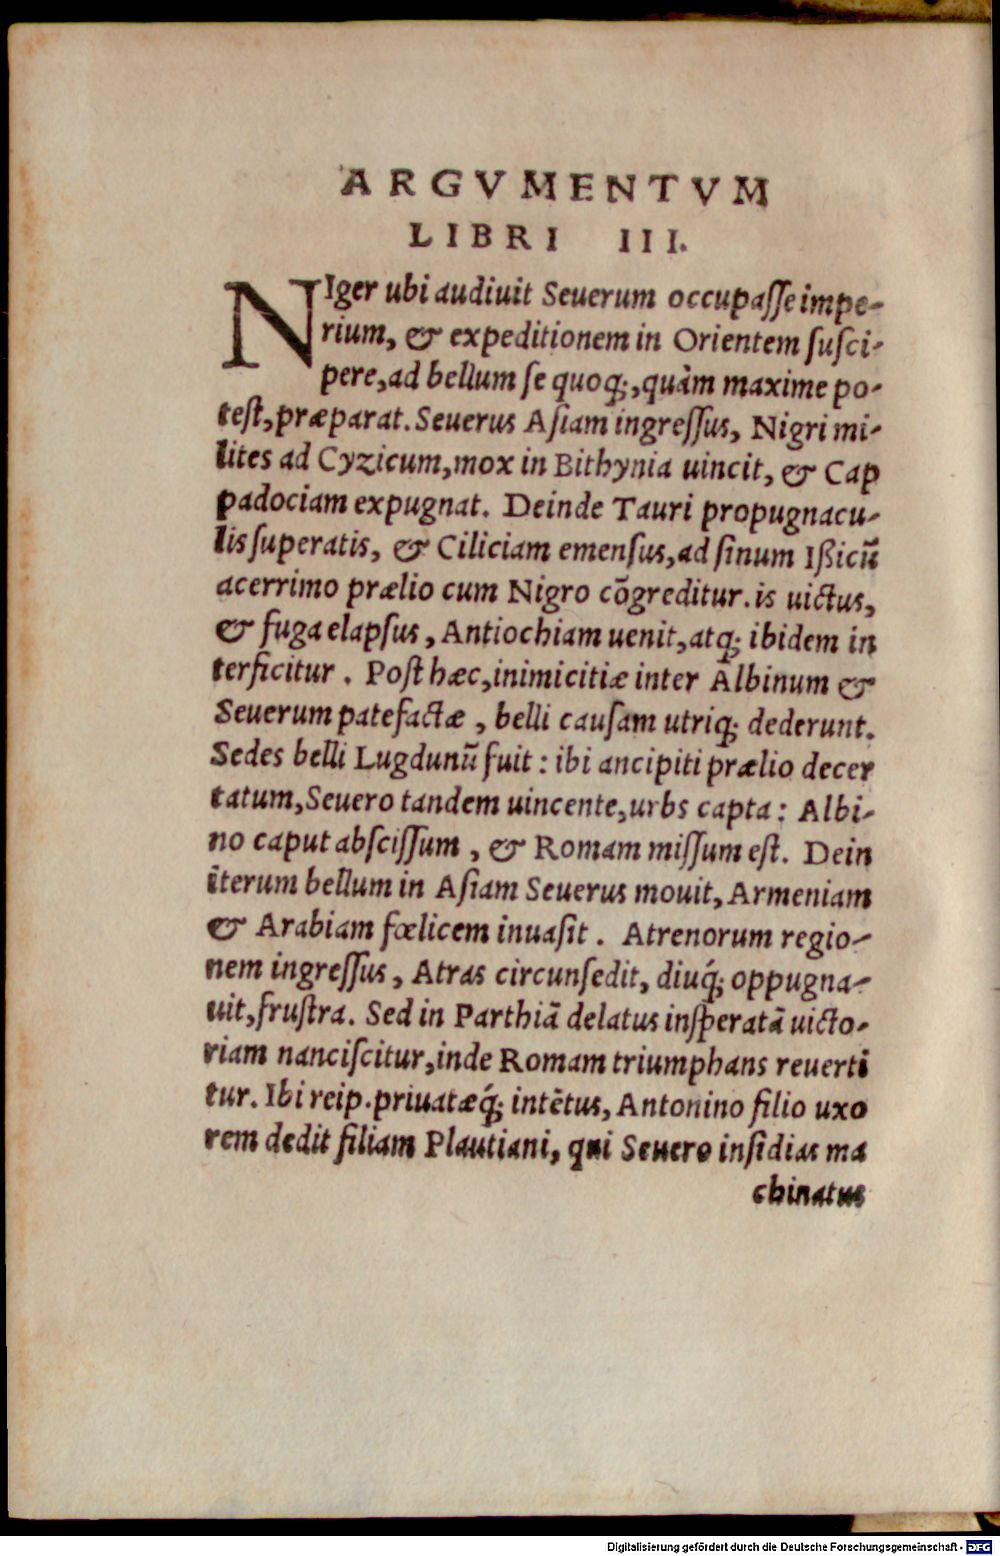 ARGVMENTVM
LIBRI III.
NIger ubi audiuit Seuerum occupaſſe impe-
rium, & expeditionem in Orientem ſuſci-
pere, ad bellum ſe quoq;, quàm maxime po-
teſt, præparat. Seuerus Aſiam ingreſſus, Nigri mi-
lites ad Cyzicum, mox in Bithynia uincit, & Cap
padociam expugnat. Deinde Tauri propugnacu-
lis ſuperatis, & Ciliciam emenſus, ad ſinum Ißicũ
acerrimo prælio cum Nigro cõgreditur. is uictus,
& fuga elapſus, Antiochiam uenit, atq; ibidem in
terficitur. Poſt hæc, inimicitiæ inter Albinum &
Seuerum patefactæ, belli cauſam utriq; dederunt.
Sedes belli Lugdunũ fuit: ibi ancipiti prælio decer
tatum, Seuero tandem uincente, urbs capta: Albi-
no caput abſciſſum, & Romam miſſum eſt. Dein
iterum bellum in Aſiam Seuerus mouit, Armeniam
& Arabiam fœlicem inuaſit. Atrenorum regio-
nem ingreſſus, Atras circunſedit, diuq́; oppugna-
uit, fruſtra. Sed in Parthiã delatus inſperatã uicto-
riam nanciſcitur, inde Romam triumphans reuerti
tur. Ibi reip. priuatæq́; intẽtus, Antonino filio uxo
rem dedit filiam Plautiani, qui Seuero inſidias ma
chinatus
Digitalisierung gefördert durch die Deutsche Forschungsgemeinschaft - DFG